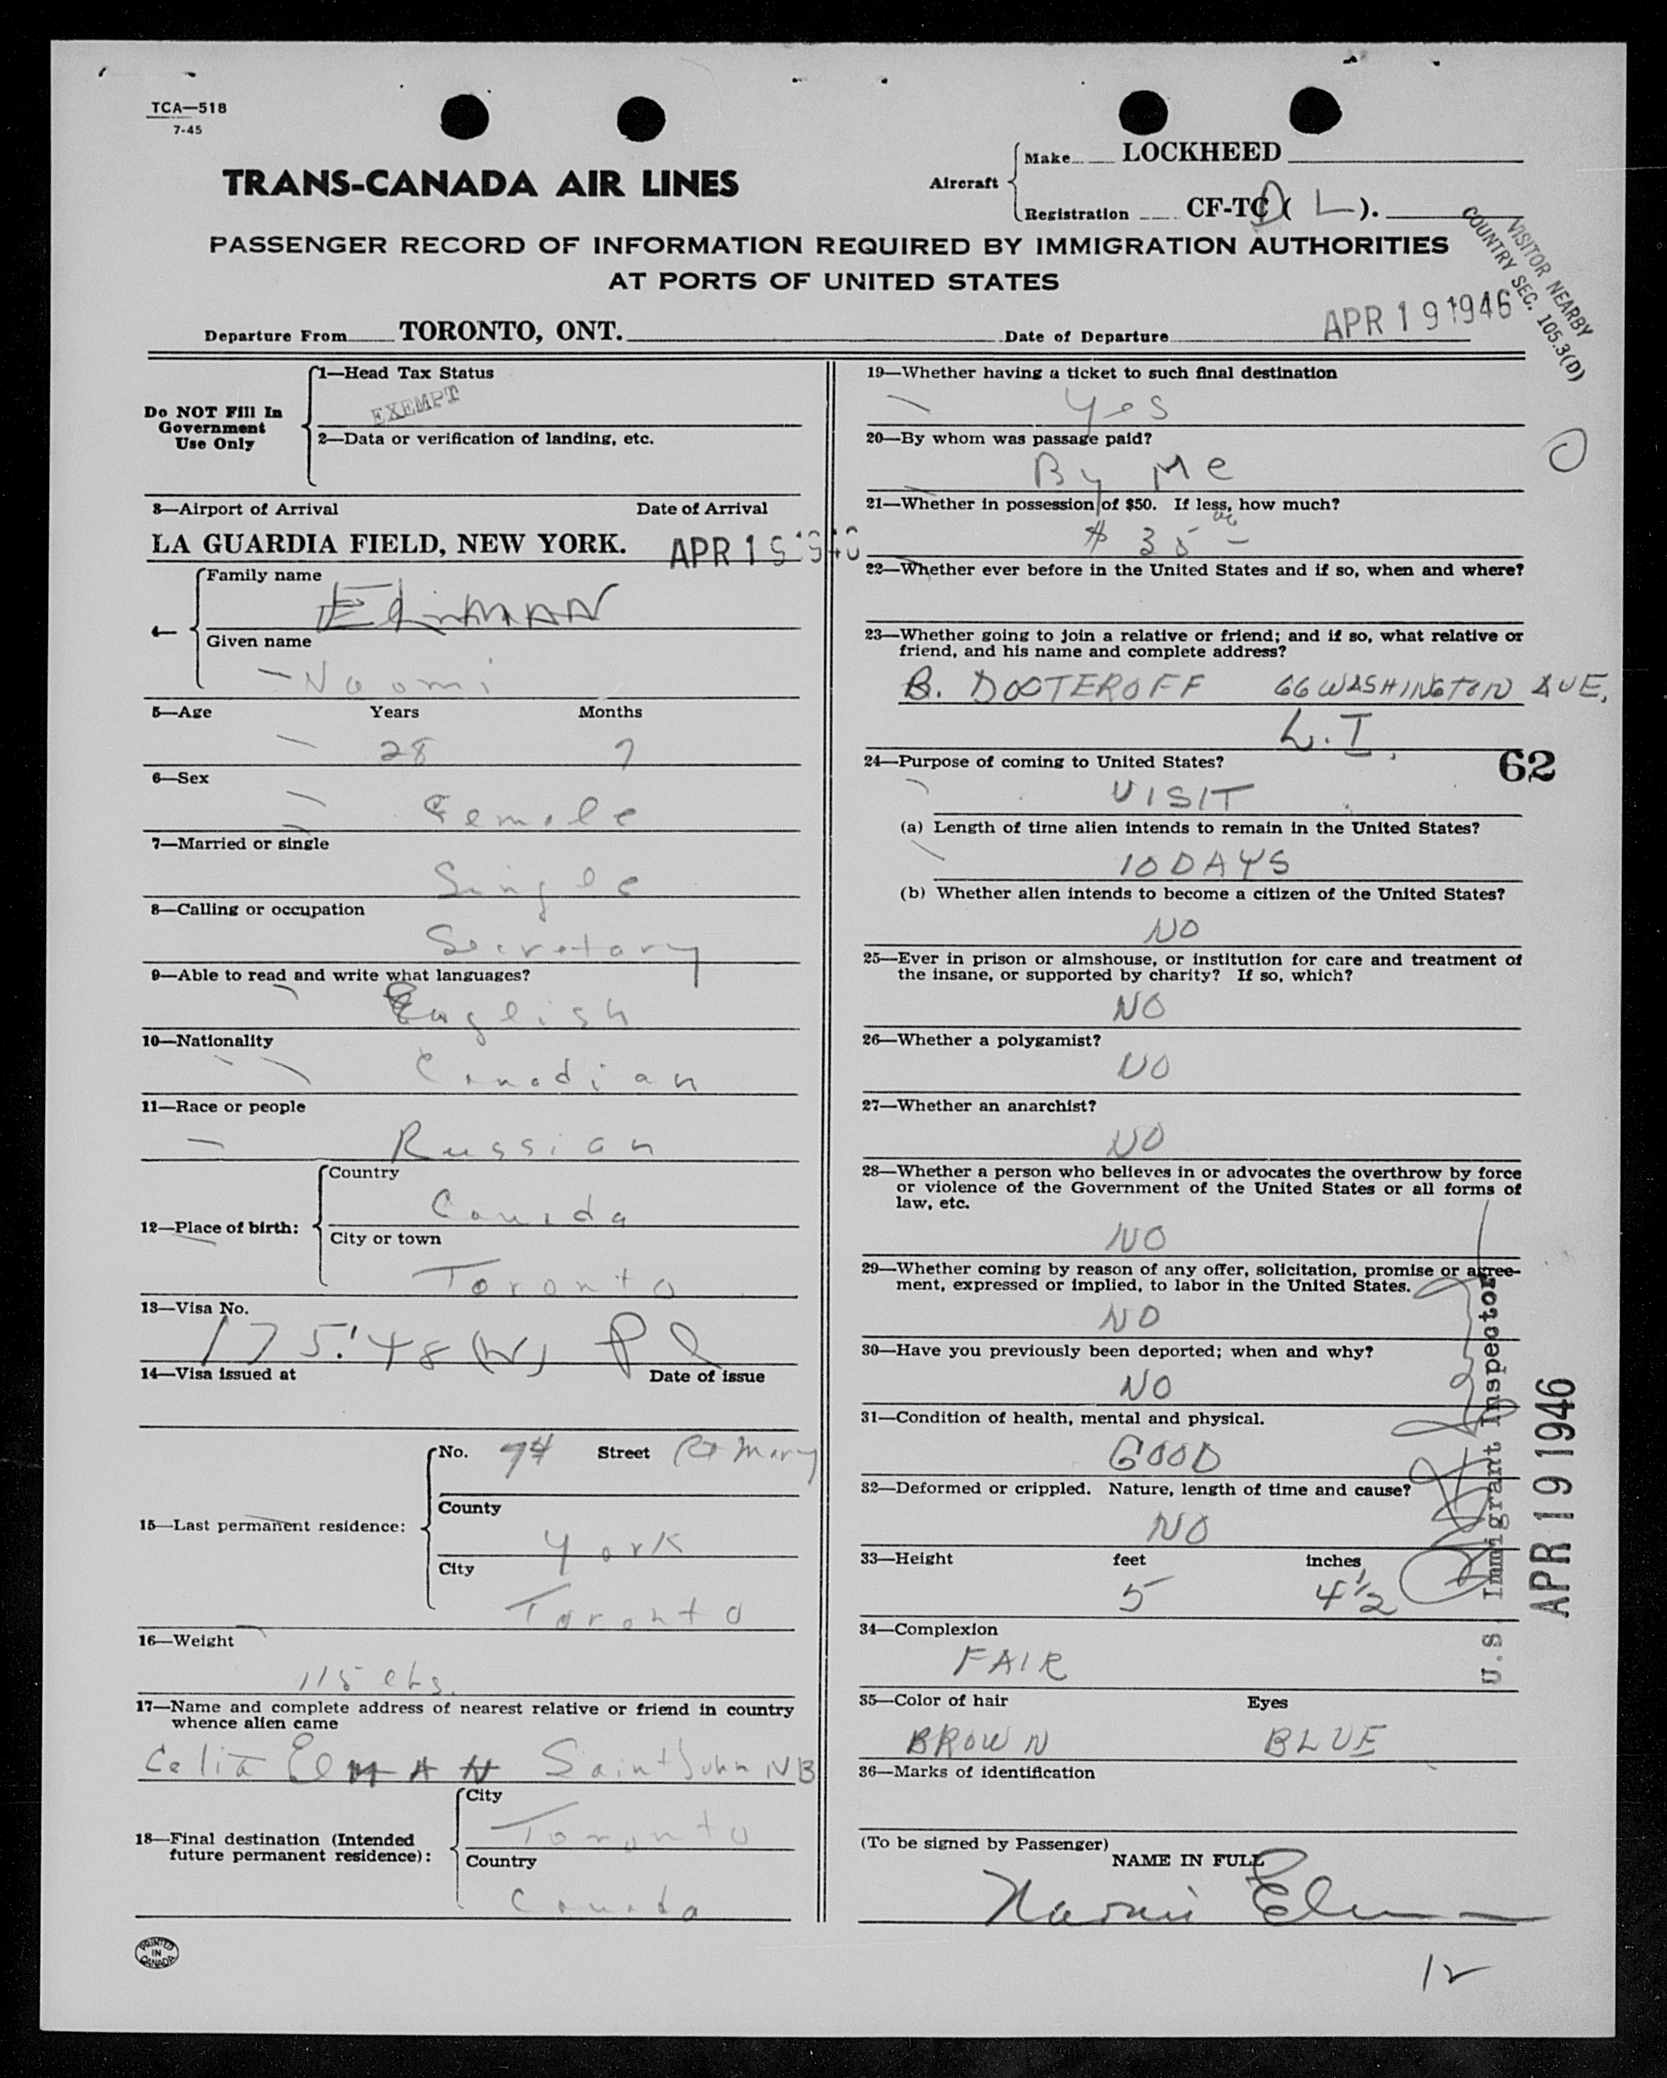 TCA—518
7-45
TRANS-CANADA AIR LINES
Aircraft
Make LOCKHEED
Registration CF-TC D ( L ).
PASSENGER RECORD OF INFORMATION REQUIRED BY IMMIGRATION AUTHORITIES
AT PORTS OF UNITED STATES
VISITOR NEARBY
COUNTRY SEC. 105.3(D)
Departure From TORONTO, ONT. Date of Departure APR 19 1946
Do NOT Fill In
Government
Use Only
1—Head Tax Status
EXEMPT
2—Data or verification of landing, etc.
3—Airport of Arrival Date of Arrival
LA GUARDIA FIELD, NEW YORK. APR 19 1946
4—
Family name
Given name
Naomi
5—Age Years Months
28 7
6—Sex
Female
7—Married or single
Single
8—Calling or occupation
Secretary
9—Able to read and write what languages?
English
10—Nationality
Canadian
11—Race or people
Russian
12—Place of birth:
Country
Canada
City or town
Toronto
13—Visa No.
175.'48 (W)
14—Visa issued at Date of issue
15—Last permanent residence:
No. 94 Street
County
York
City
Toronto
16—Weight
115 lbs.
17—Name and complete address of nearest relative or friend in country
whence alien came
Celia ElMAN Saint John NB
18—Final destination (Intended
future permanent residence):
City
Toronto
Country
Canada
PRINTED
IN
CANADA
19—Whether having a ticket to such final destination
Yes
20—By whom was passage paid?
By Me
21—Whether in possession of $50. If less, how much?
$ 35 00
22—Whether ever before in the United States and if so, when and where?
23—Whether going to join a relative or friend; and if so, what relative or
friend, and his name and complete address?
B. DOOTEROFF 66 WASHINGTON AVE,
L.I.
62
24—Purpose of coming to United States?
VISIT
(a) Length of time alien intends to remain in the United States?
10 DAYS
(b) Whether alien intends to become a citizen of the United States?
NO
25—Ever in prison or almshouse, or institution for care and treatment of
the insane, or supported by charity? If so, which?
NO
26—Whether a polygamist?
NO
27—Whether an anarchist?
NO
28—Whether a person who believes in or advocates the overthrow by force
or violence of the Government of the United States or all forms of
law, etc.
NO
29—Whether coming by reason of any offer, solicitation, promise or agree-
ment, expressed or implied, to labor in the United States.
NO
30—Have you previously been deported; when and why?
NO
31—Condition of health, mental and physical.
GOOD
32—Deformed or crippled. Nature, length of time and cause?
NO
33—Height feet inches
5 4½
34—Complexion
FAIR
35—Color of hair Eyes
BROWN BLUE
36—Marks of identification
(To be signed by Passenger)
NAME IN FULL
Naomi Elman
U.S. Immigrant Inspector
APR 19 1946
12